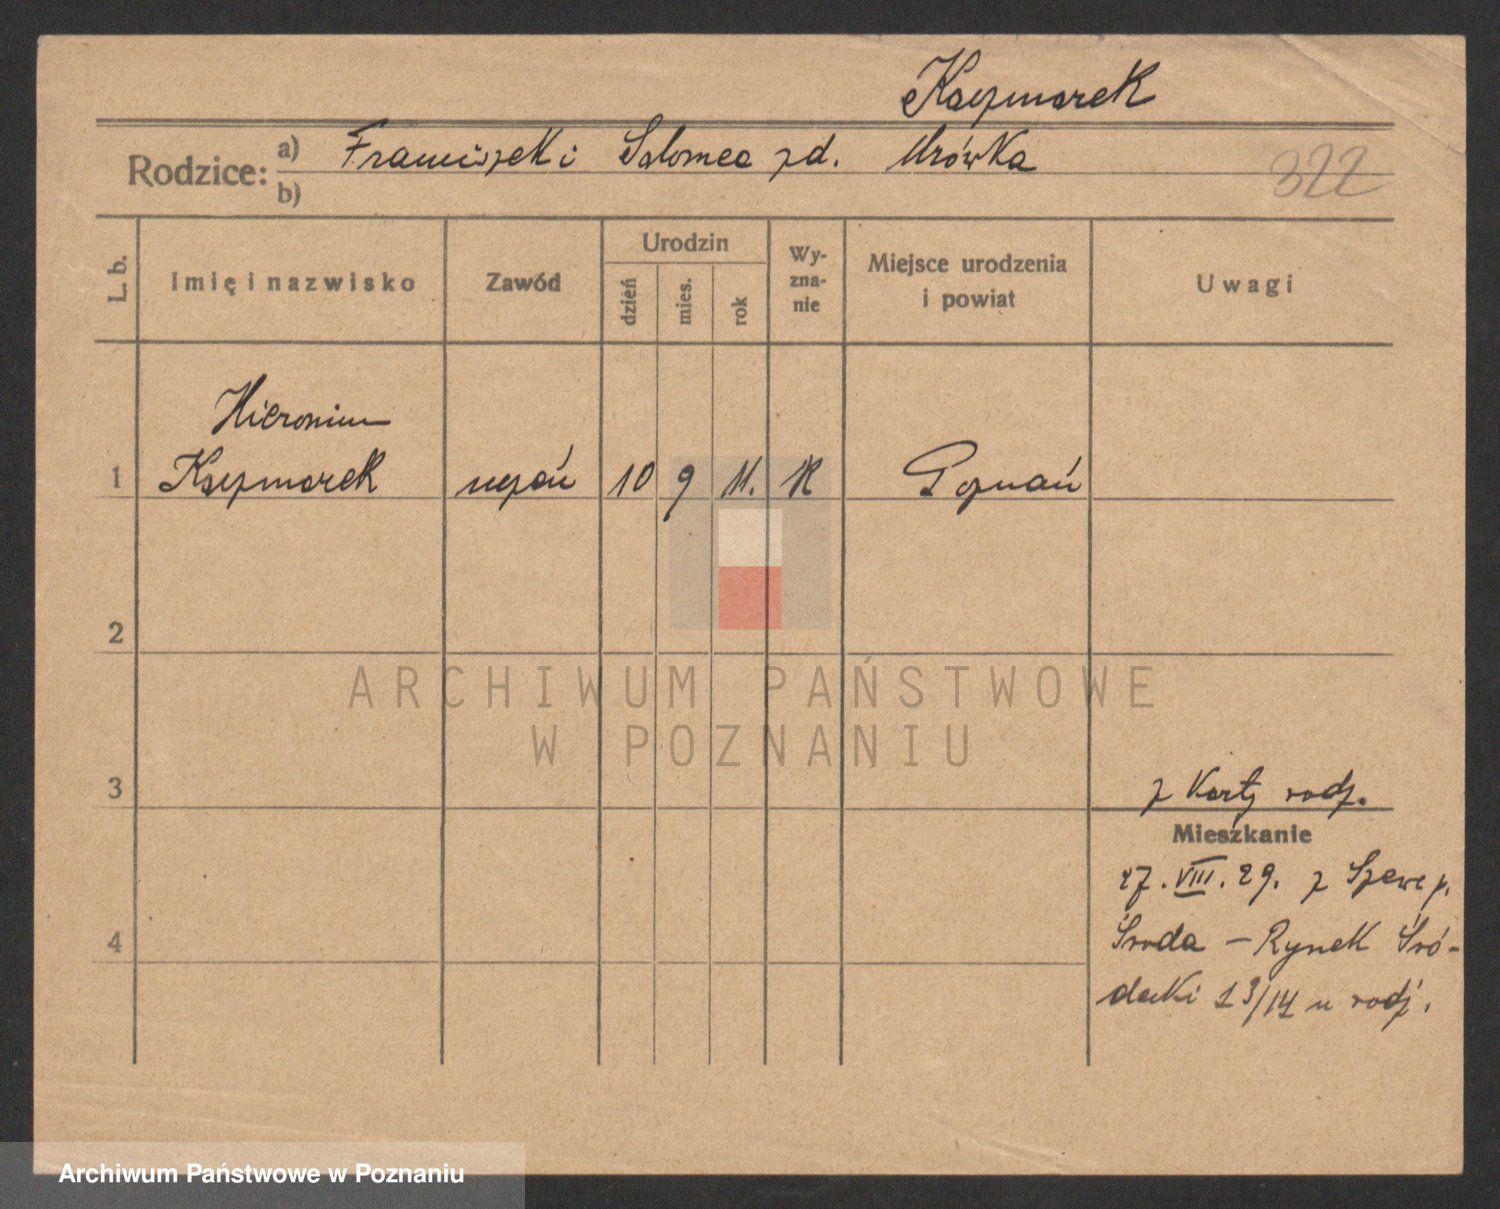 Kaczmarek
Rodzice: a) Franciszek i Salomea zd. Mrówka
b)
322
L. b.
Imię i nazwisko
Zawód
Urodzin
dzień
mies.
rok
Wy-
zna-
nie
Miejsce urodzenia
i powiat
Uwagi
Hieronim
1 Kaczmarek uczeń 10 9 11. K Poznań
2
3
4
z Karty rodz.
Mieszkanie
27. VIII. 29. z
Środa – Rynek Śró-
decki 13/14 u rodz.
ARCHIWUM PAŃSTWOWE
W POZNANIU
Archiwum Państwowe w Poznaniu